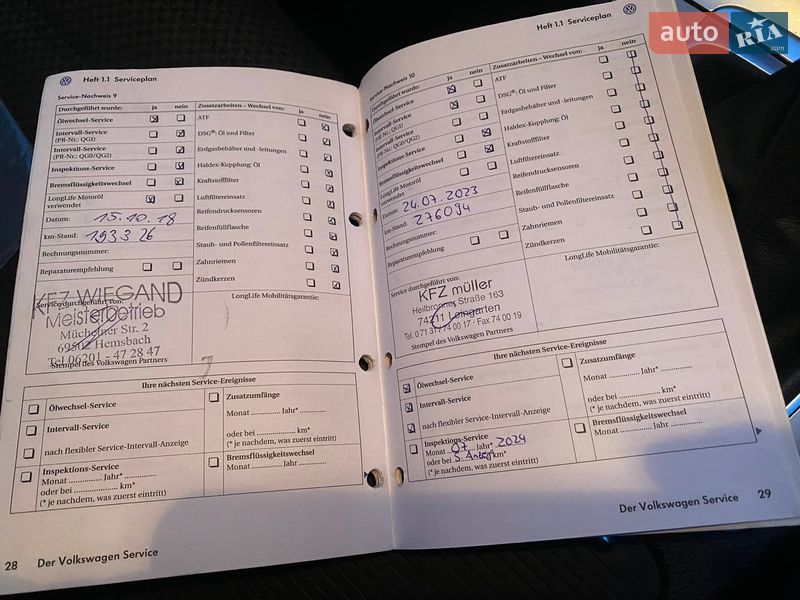 Heft 1.1 Serviceplan
Service-Nachweis 9
Durchgeführt wurde: ja nein
Ölwechsel-Service
Intervall-Service
(PR-Nr.: QG1)
Intervall-Service
(PR-Nr.: QG0/QG2)
Inspektions-Service
Bremsflüssigkeitswechsel
LongLife Motoröl
verwendet
Datum: 15.10.18
km-Stand: 193326
Rechnungsnummer:
Reparaturempfehlung
Zusatzarbeiten – Wechsel von: ja nein
ATF
DSG®: Öl und Filter
Erdgasbehälter und -leitungen
Haldex-Kupplung: Öl
Kraftstofffilter
Luftfiltereinsatz
Reifendrucksensoren
Reifenfüllflasche
Staub- und Pollenfiltereinsatz
Zahnriemen
Zündkerzen
Service durchgeführt von:
KFZ WIEGAND
Meisterbetrieb
Str. 2
69502 Hemsbach
Tel 06201 - 47 28 47
Stempel des Volkswagen Partners
LongLife Mobilitätsgarantie:
Ihre nächsten Service-Ereignisse
Ölwechsel-Service
Intervall-Service
nach flexibler Service-Intervall-Anzeige
Inspektions-Service
Monat .............. Jahr* ..............
oder bei .................... km*
(* je nachdem, was zuerst eintritt)
Zusatzumfänge
Monat ............ Jahr* ..............
oder bei .................... km*
(* je nachdem, was zuerst eintritt)
Bremsflüssigkeitswechsel
Monat .............. Jahr ..............
28 Der Volkswagen Service
Heft 1.1 Serviceplan
Service-Nachweis 10
Durchgeführt wurde: ja nein
Ölwechsel-Service
Intervall-Service
(PR-Nr.: QG1)
Intervall-Service
(PR-Nr.: QG0/QG2)
Inspektions-Service
Bremsflüssigkeitswechsel
LongLife Motoröl
verwendet
Datum: 24.07.2023
km-Stand: 276094
Rechnungsnummer:
Reparaturempfehlung
Zusatzarbeiten – Wechsel von: ja nein
ATF
DSG®: Öl und Filter
Erdgasbehälter und -leitungen
Haldex-Kupplung: Öl
Kraftstofffilter
Luftfiltereinsatz
Reifendrucksensoren
Reifenfüllflasche
Staub- und Pollenfiltereinsatz
Zahnriemen
Zündkerzen
Service durchgeführt von:
KFZ müller
Heilbronner Straße 163
74211 Leingarten
Tel. 0 71 31 / 74 00 17 · Fax 74 00 19
Stempel des Volkswagen Partners
LongLife Mobilitätsgarantie:
Ihre nächsten Service-Ereignisse
Ölwechsel-Service
Intervall-Service
nach flexibler Service-Intervall-Anzeige
Inspektions-Service
Monat 07 Jahr* 2024
oder bei km*
(* je nachdem, was zuerst eintritt)
Zusatzumfänge
Monat ............ Jahr* ..............
oder bei .................... km*
(* je nachdem, was zuerst eintritt)
Bremsflüssigkeitswechsel
Monat .............. Jahr ..............
Der Volkswagen Service 29
auto RIA.com